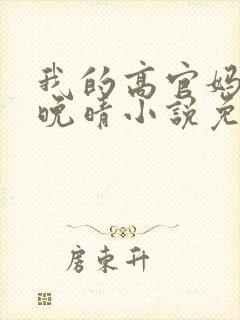 我的高官妈
晚晴小说免
唐东升